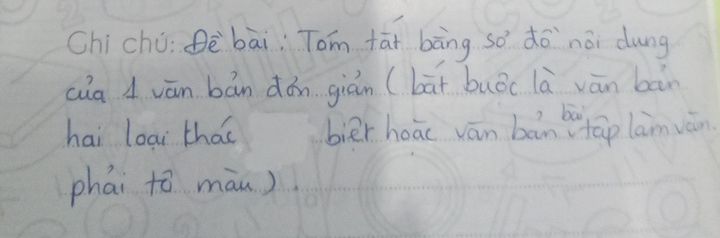 Ghi chú: Đề bài: Tóm tắt bằng sơ đồ nội dung
của 1 văn bản đơn giản (bắt buộc là văn bản
hai loại khác biệt hoặc văn bản bài tập làm văn.
phải tô màu).